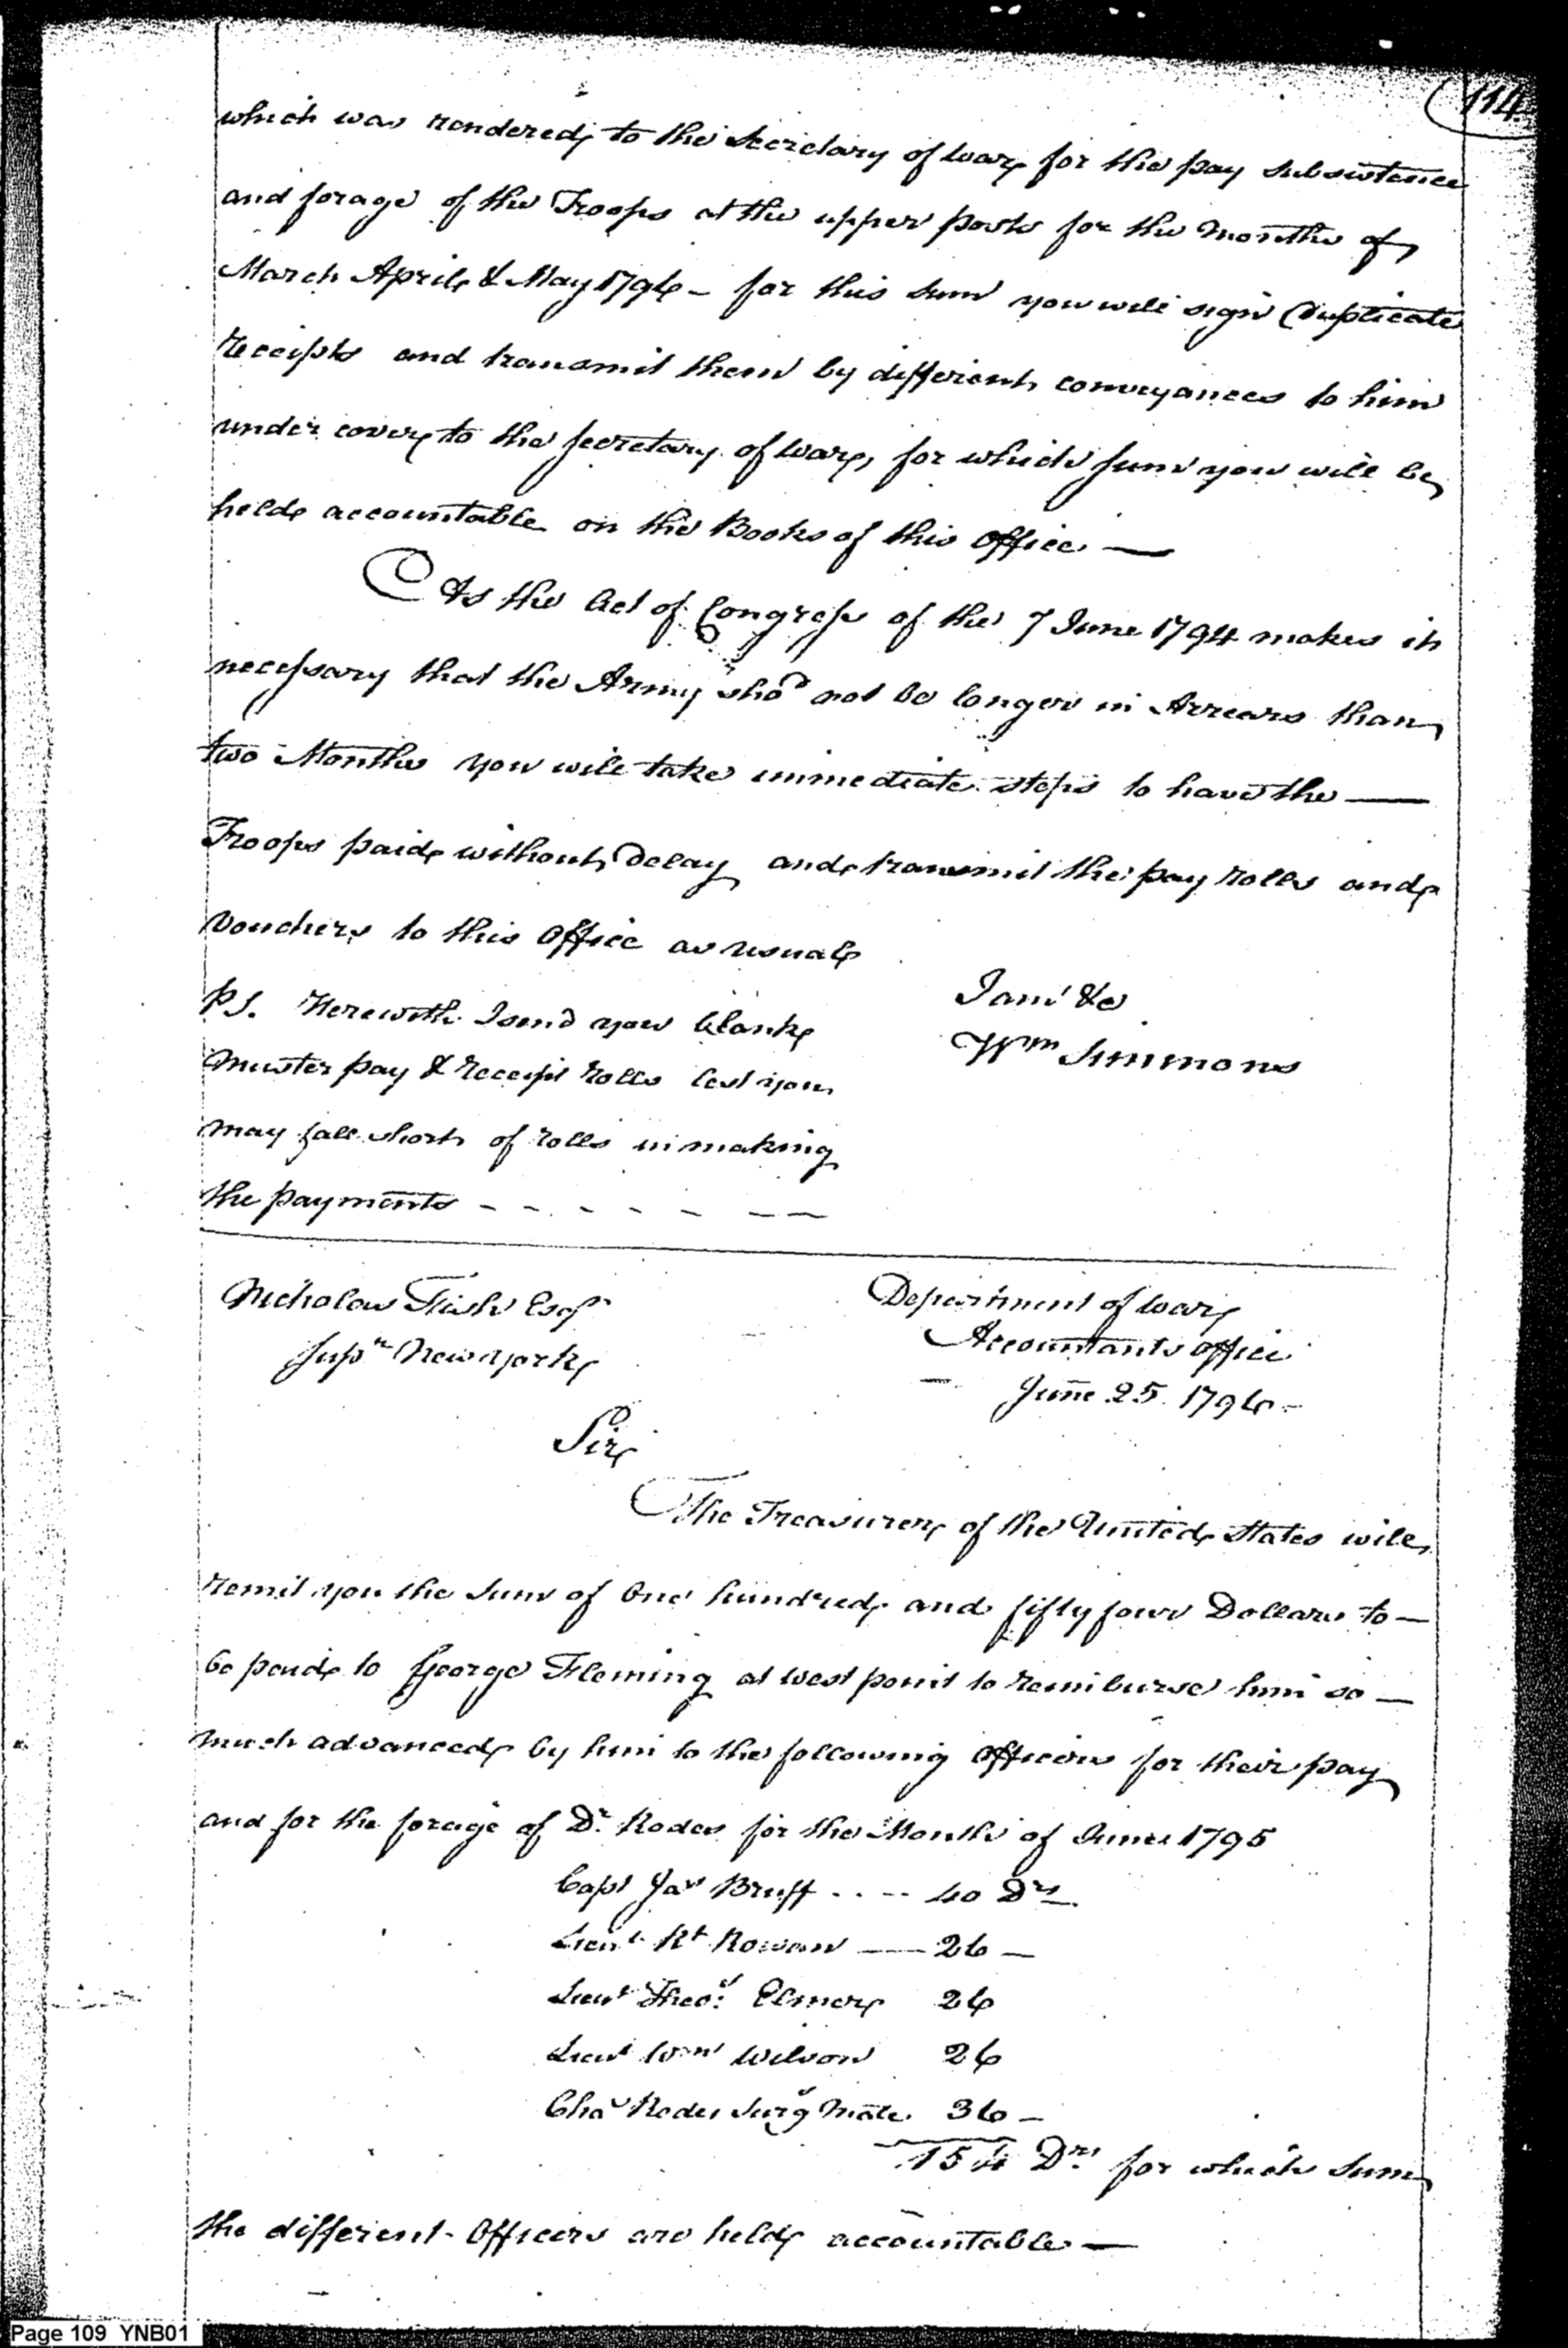 114
which was rendered to the Secretary of War for the pay subsistence
and forage of the Troops at the upper posts for the Months of
March April & May 1796 - for this sum you will sign Duplicate
receipts and transmit them by different conveyances to him
under cover to the Secretary of War, for which sum you will be
held accountable on the Books of this office —
As the Act of Congress of the 7 June 1794 makes it
necessary that the Army shod not be longer in Arrears than
two Months you will take immediate steps to have the —
Troops paid without Delay and transmit the pay rolls and
Vouchers to this Office as usual
I am &c
Wm Simmons
PS. Herewith I send you blank
Muster pay & receipt rolls lest you
may fall short of rolls in making
the payments - - - - - - -
Nicholas Fish Esqr
Supr New York
Department of War
Accountants office
June 25. 1796 -
Sir
The Treasurer of the United States will
remit you the sum of One hundred and fifty four Dollars to —
be paid to George Fleming at west point to reimburse him so —
much advanced by him to the following Officers for their pay
and for the forage of Dr. Rodes for the Month of June 1795
Capt Jas Bruff - - - - 40 Drs
Lieut Rt Rowan — 26 —
Lieut Theos. Elmer 26
Lieut Wm Wilson 26
Chas Rodes Surgs Mate. 36 —
154 Drs for which sum
the different Officers are held accountable —
Page 109 YNB01